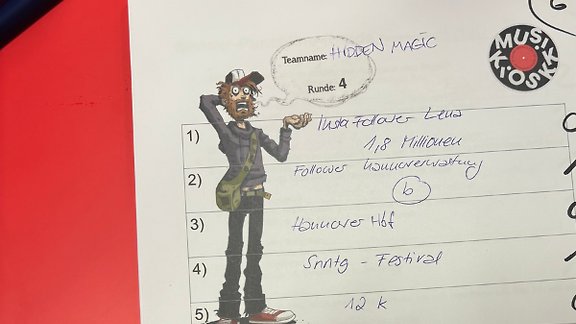 Teamname: HIDDEN MAGIC
Runde: 4
MUSIK KIOSK
1) Insta Follower Lena
1,8 Millionen
2) Follower Hannoverwstung
b
3) Hannover Hbf
4) Snntg - Festival
5) 12 k